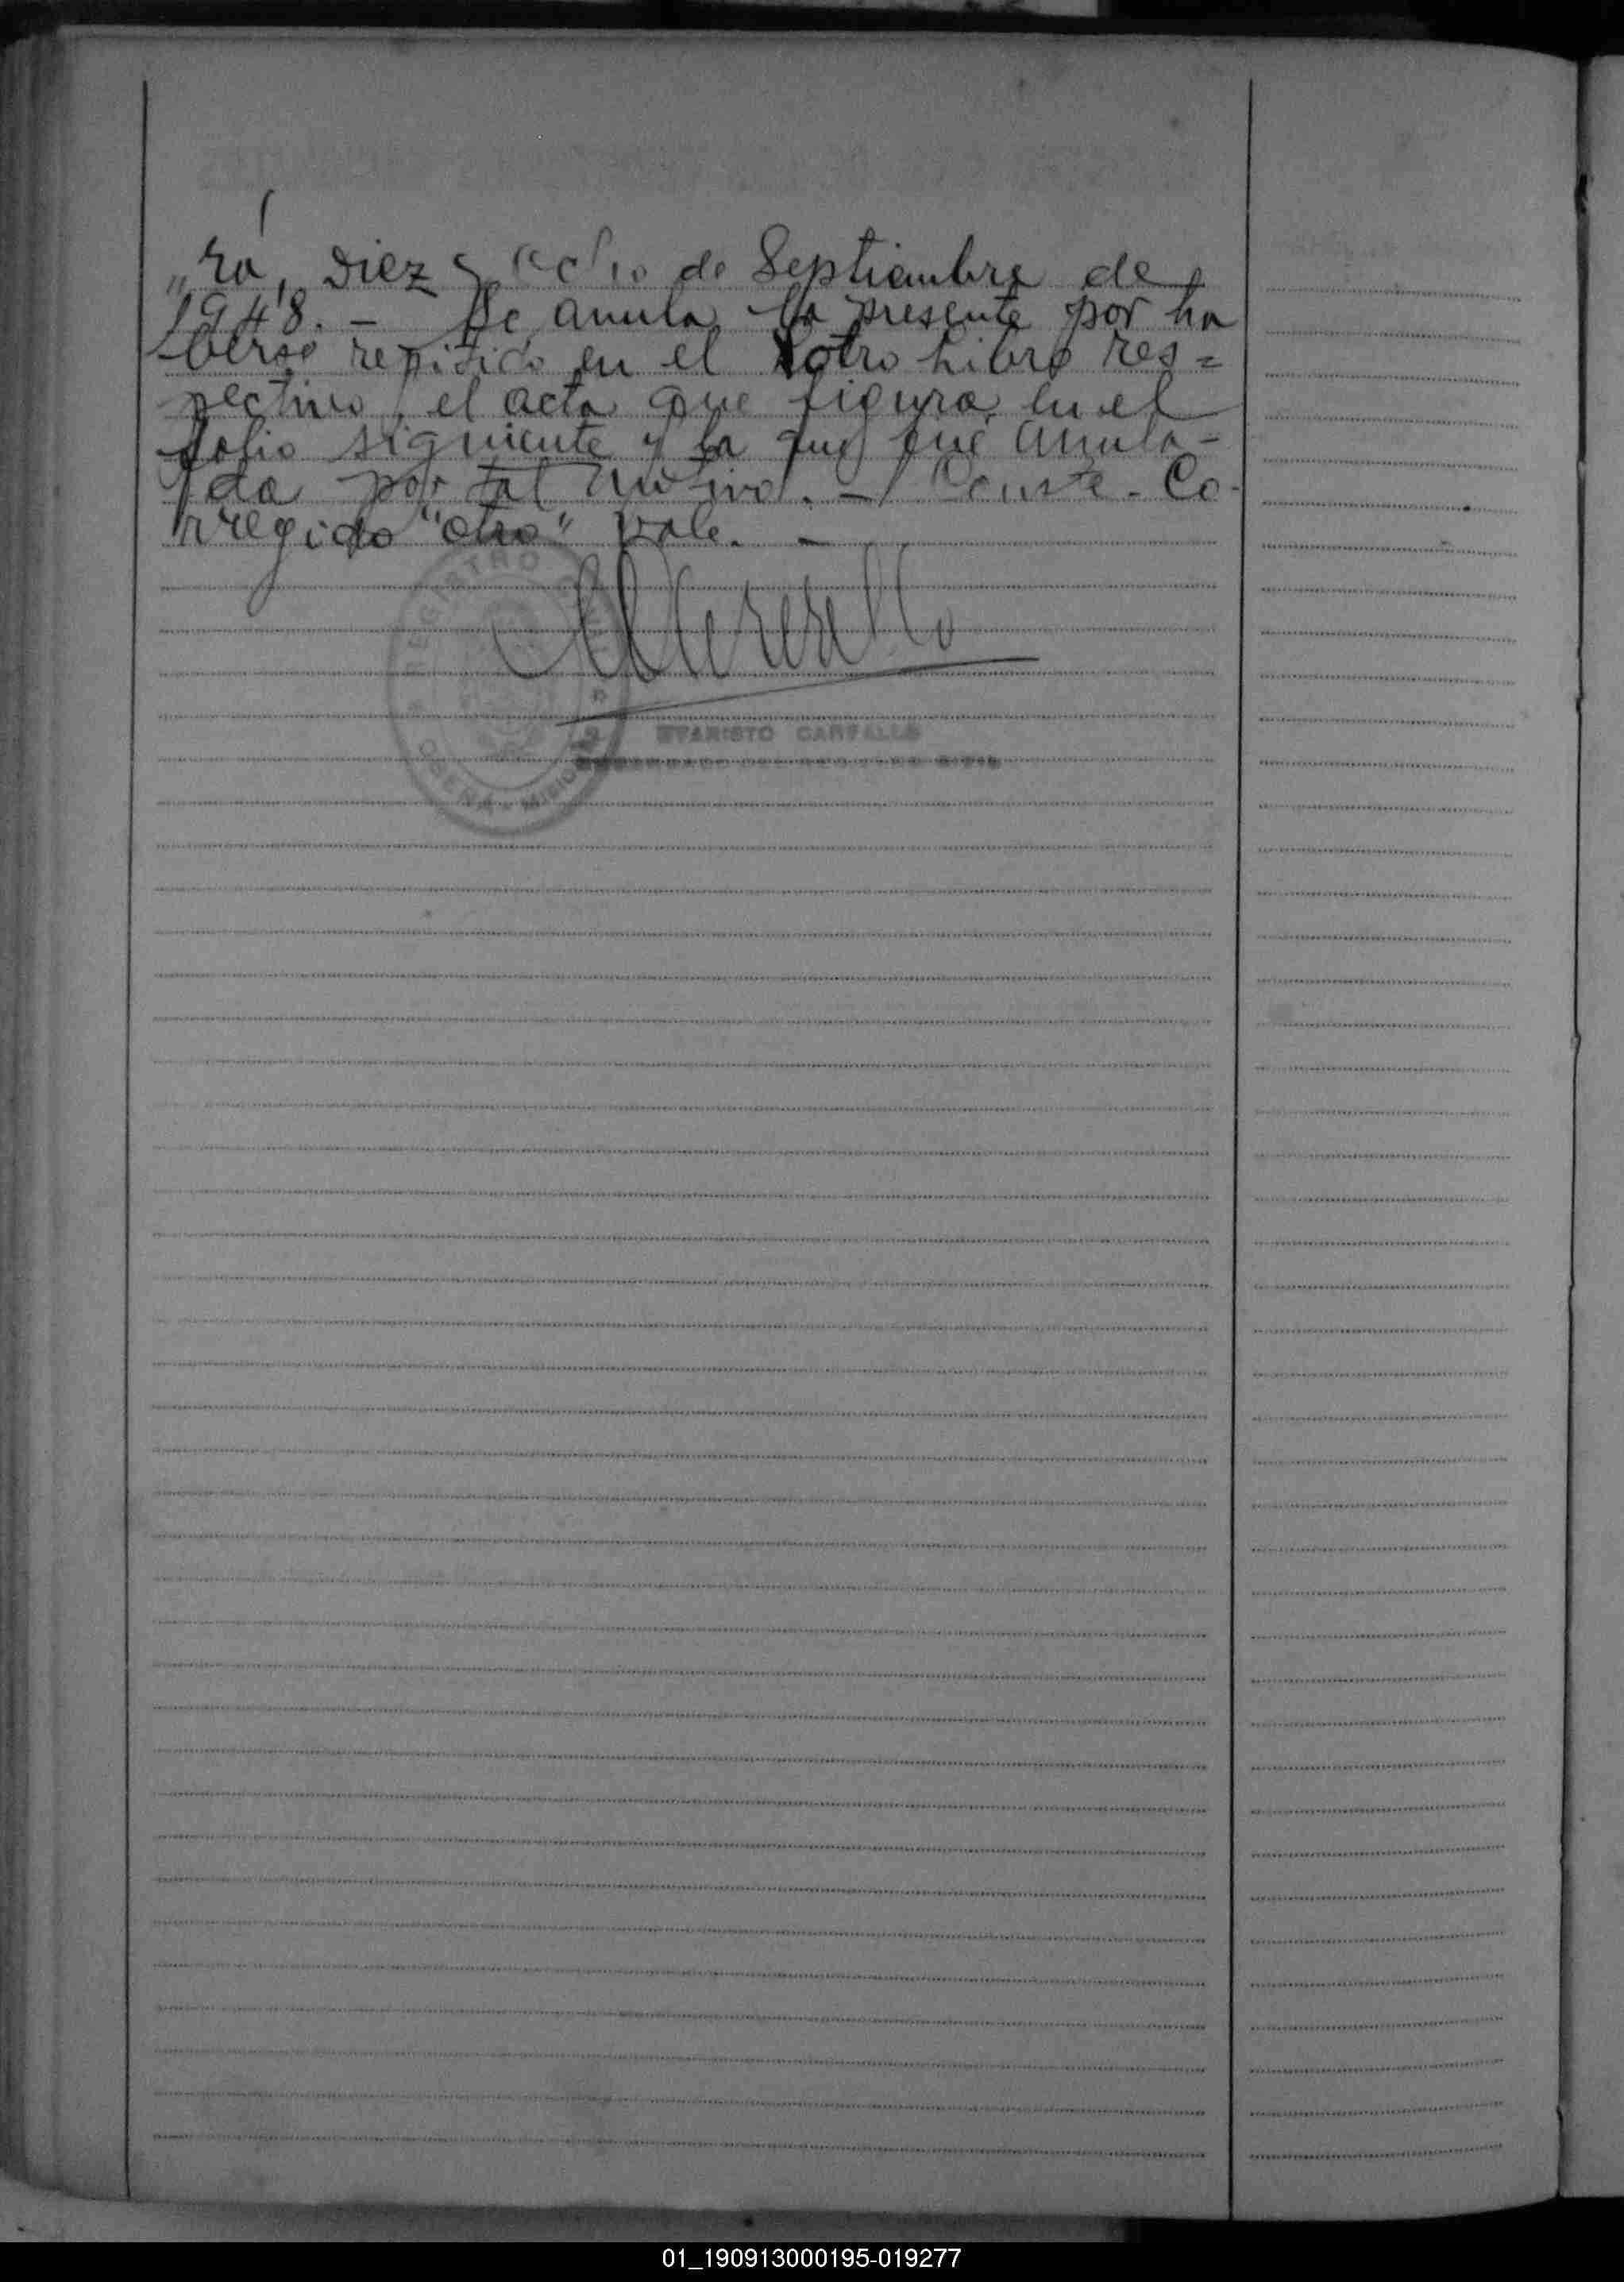 „rá, Diez y ocho de Septiembre de
1948. - Se anula la presente por ha
berse repitido en el otro Libro res=
pectivo, el acta que figura en el
folio siguiente y la que fué anula-
da por tal motivo. - Conste. Co-
rregido "otro" vale. -
REGISTRO
OBERA - MISIONES
EVARISTO CARFALLO
ENCARGADO DEL REGISTRO CIVIL
01_190913000195-019277